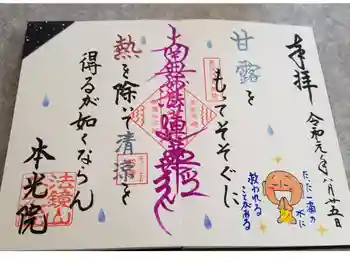 奉拝
令和元年八月廿五日
たった一滴の
水に
救われる
ことがある
甘露を
もてそそぐに
南無妙法蓮華経
熱を除いて清涼を
得るが如くならん
法鏡山
本光院